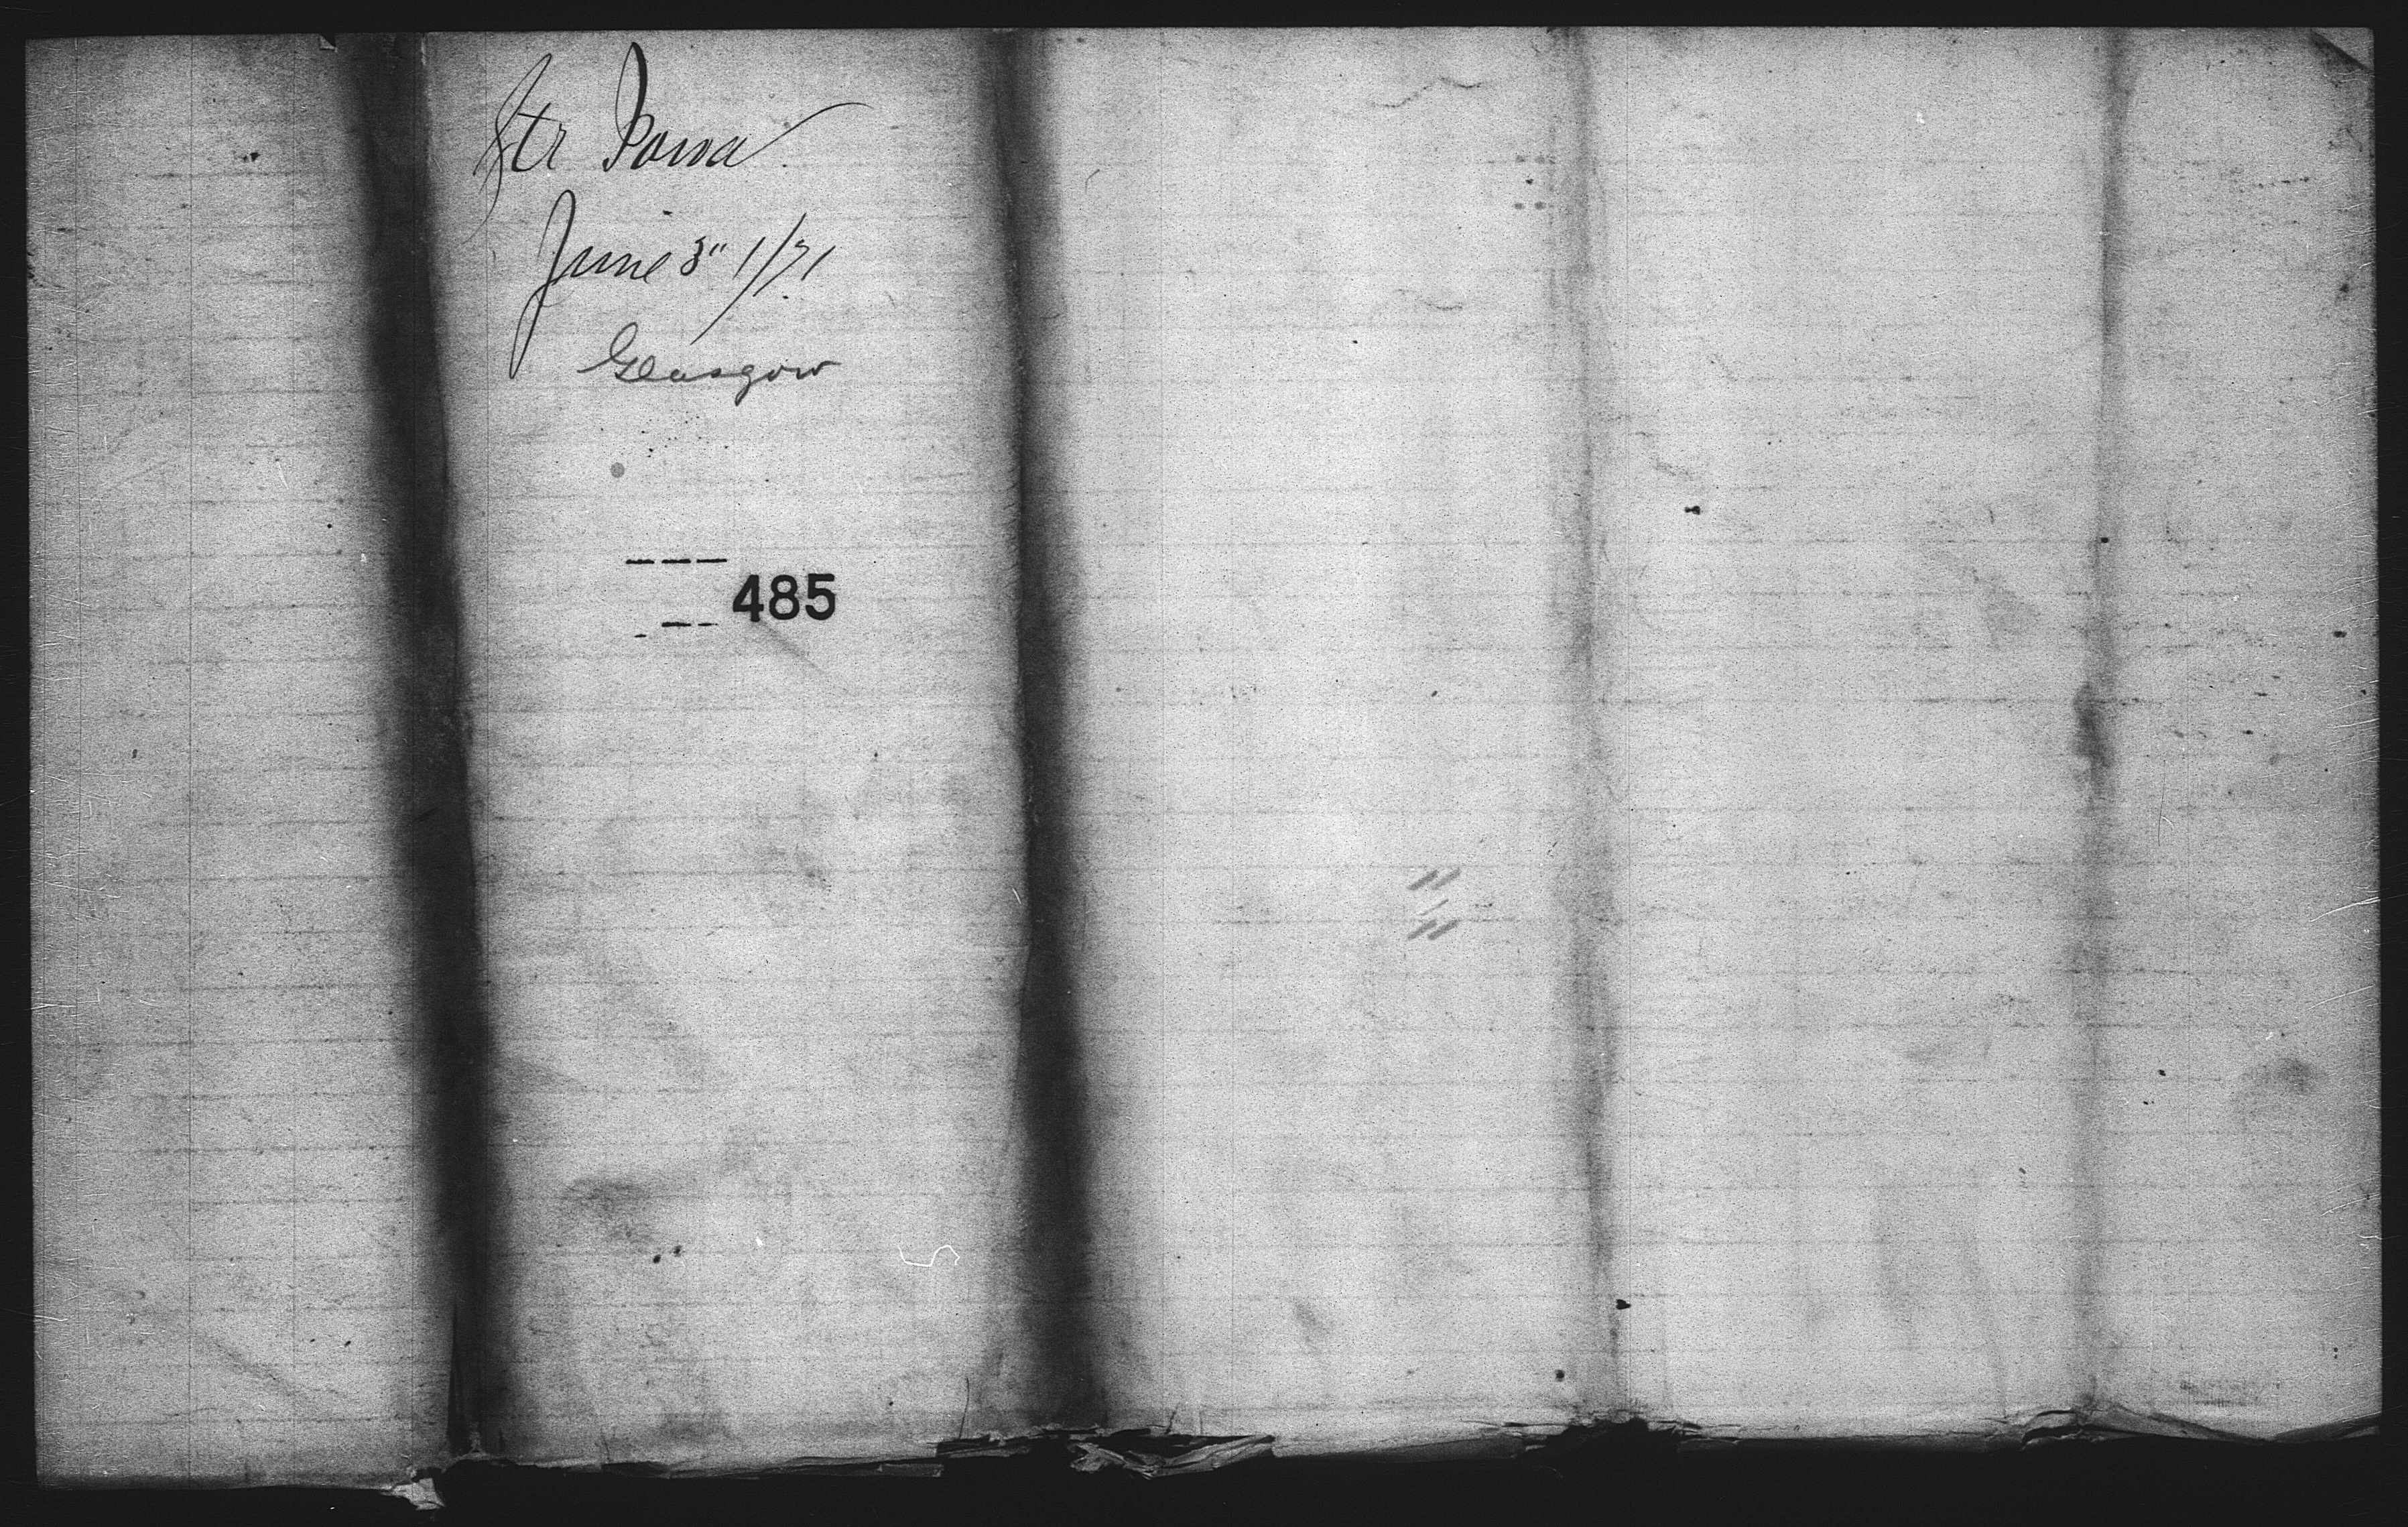 Str Iowa
June 3" 1/71
Glasgow
485